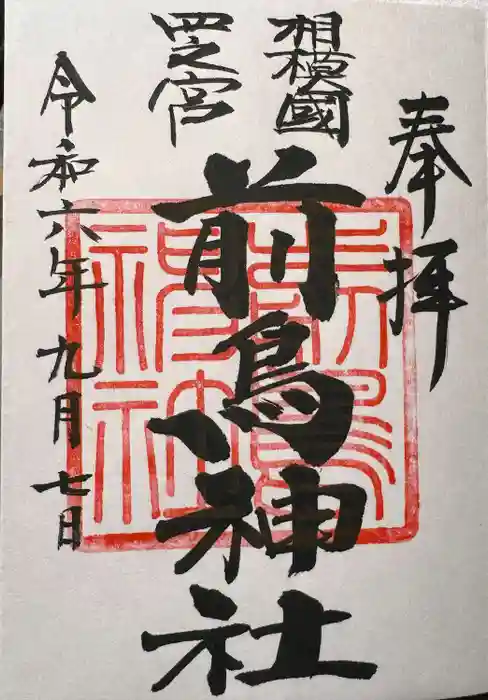 奉拝
相模國
四之宮
前鳥神社
令和六年九月七日